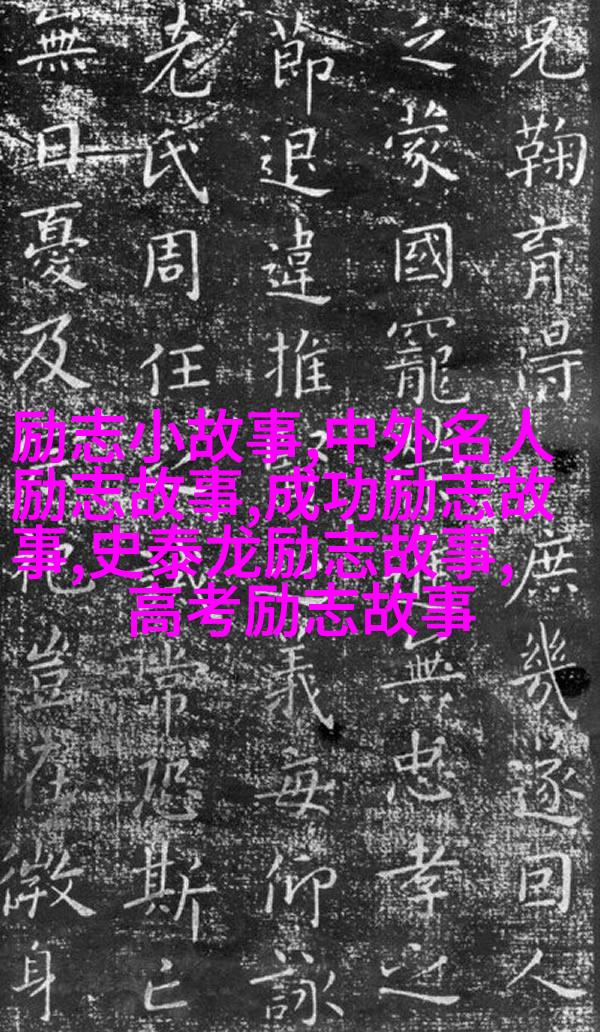 兄鞠育得庶幾遂回人
之蒙國寵無忠孝之
節退違推義每仰詠
老氏周任常恐斯亡
無日憂及祀豈在微身
励志小故事,中外名人
励志故事,成功励志故
事,史泰龙励志故事,
高考励志故事